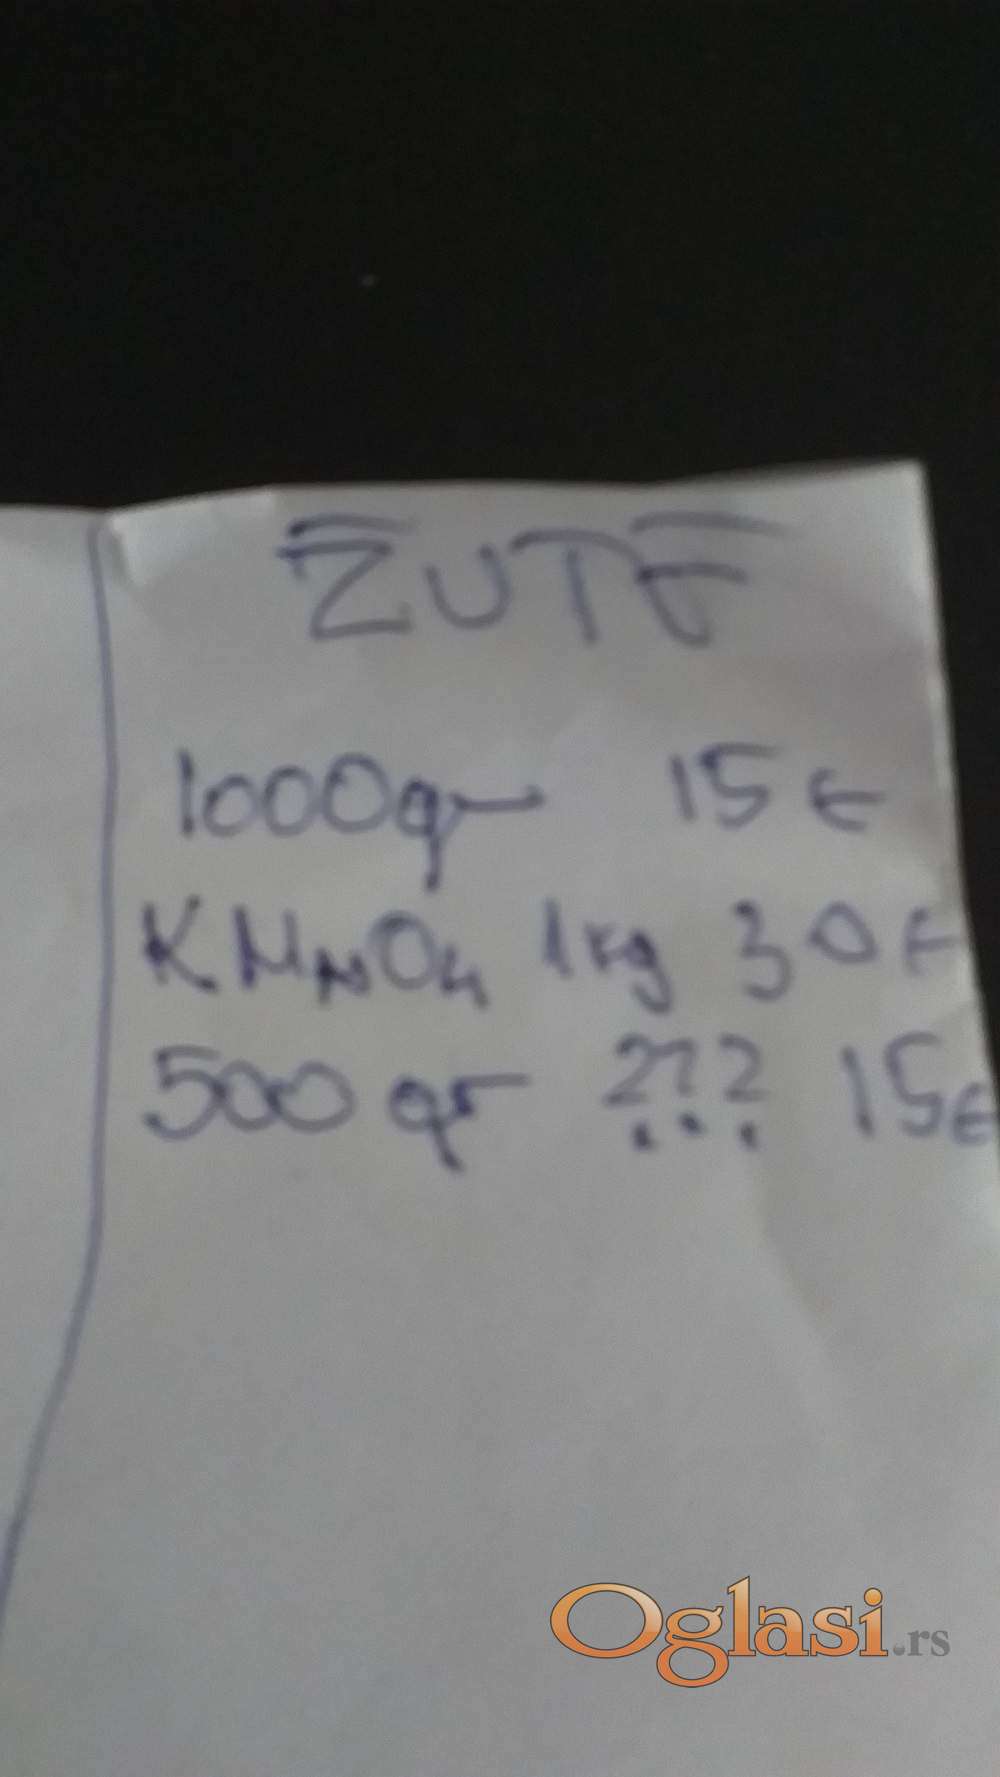 ŽUTE
1000gr 15€
KMnO4 1kg 30€
500gr ??? 15€
Oglasi.rs